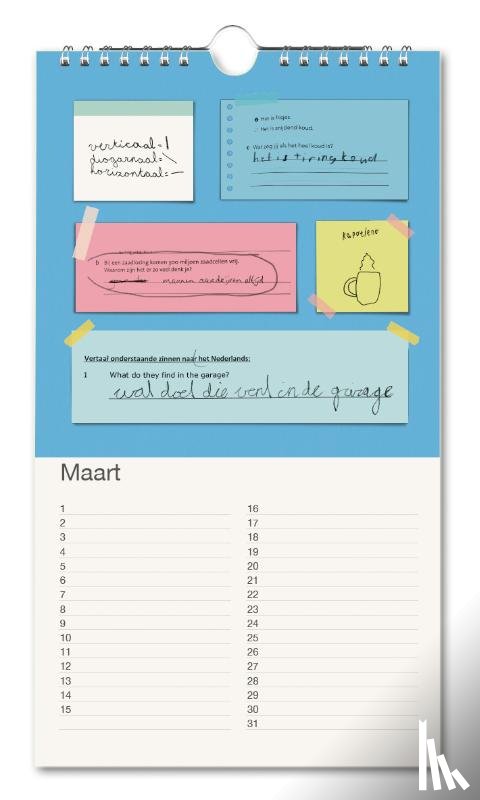 verticaal=|
diogarnaal=\
horizontaal=—
Het is frisjes.
Het is snijdend koud.
c Wat zeg jij als het heel koud is?
het is tiring koud
b Bij een zaadlozing komen 300 miljoen zaadcellen vrij.
Waarom zijn het er zo veel denk je?
mannen overdrijven altijd
Kapotjeno
Vertaal onderstaande zinnen naar het Nederlands:
1 What do they find in the garage?
wat doet die vent in de garage
Maart
1
2
3
4
5
6
7
8
9
10
11
12
13
14
15
16
17
18
19
20
21
22
23
24
25
26
27
28
29
30
31